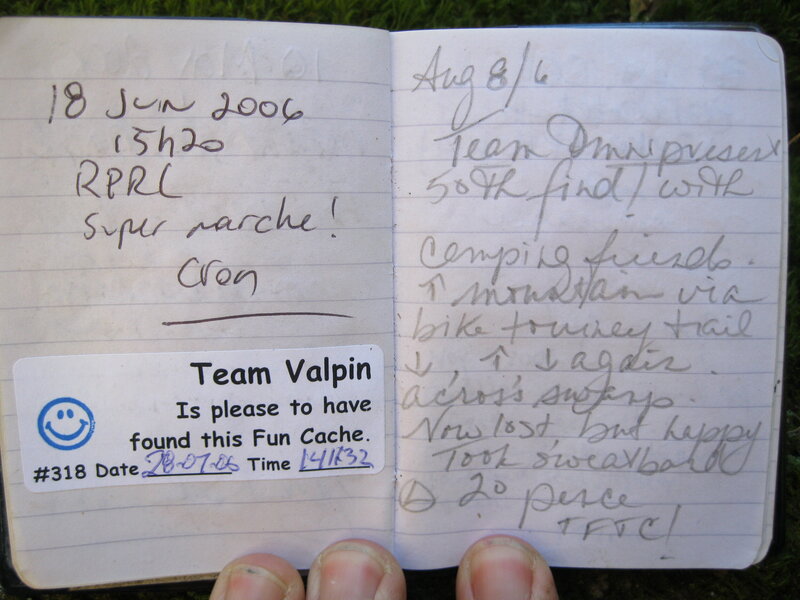 18 Jun 2006
15h20
RPRL
Super marche!
Cron
Team Valpin
Is please to have
found this Fun Cache.
#318 Date 28-07-06 Time 14h32
Aug 8/6
Team Omnipresent
50th find! with
camping friends.
↑ mountain via
bike tourney trail
↓, ↑ ↓ again.
across swamp.
Now lost, but happy
Took sweatband
20 pence
TFTC!